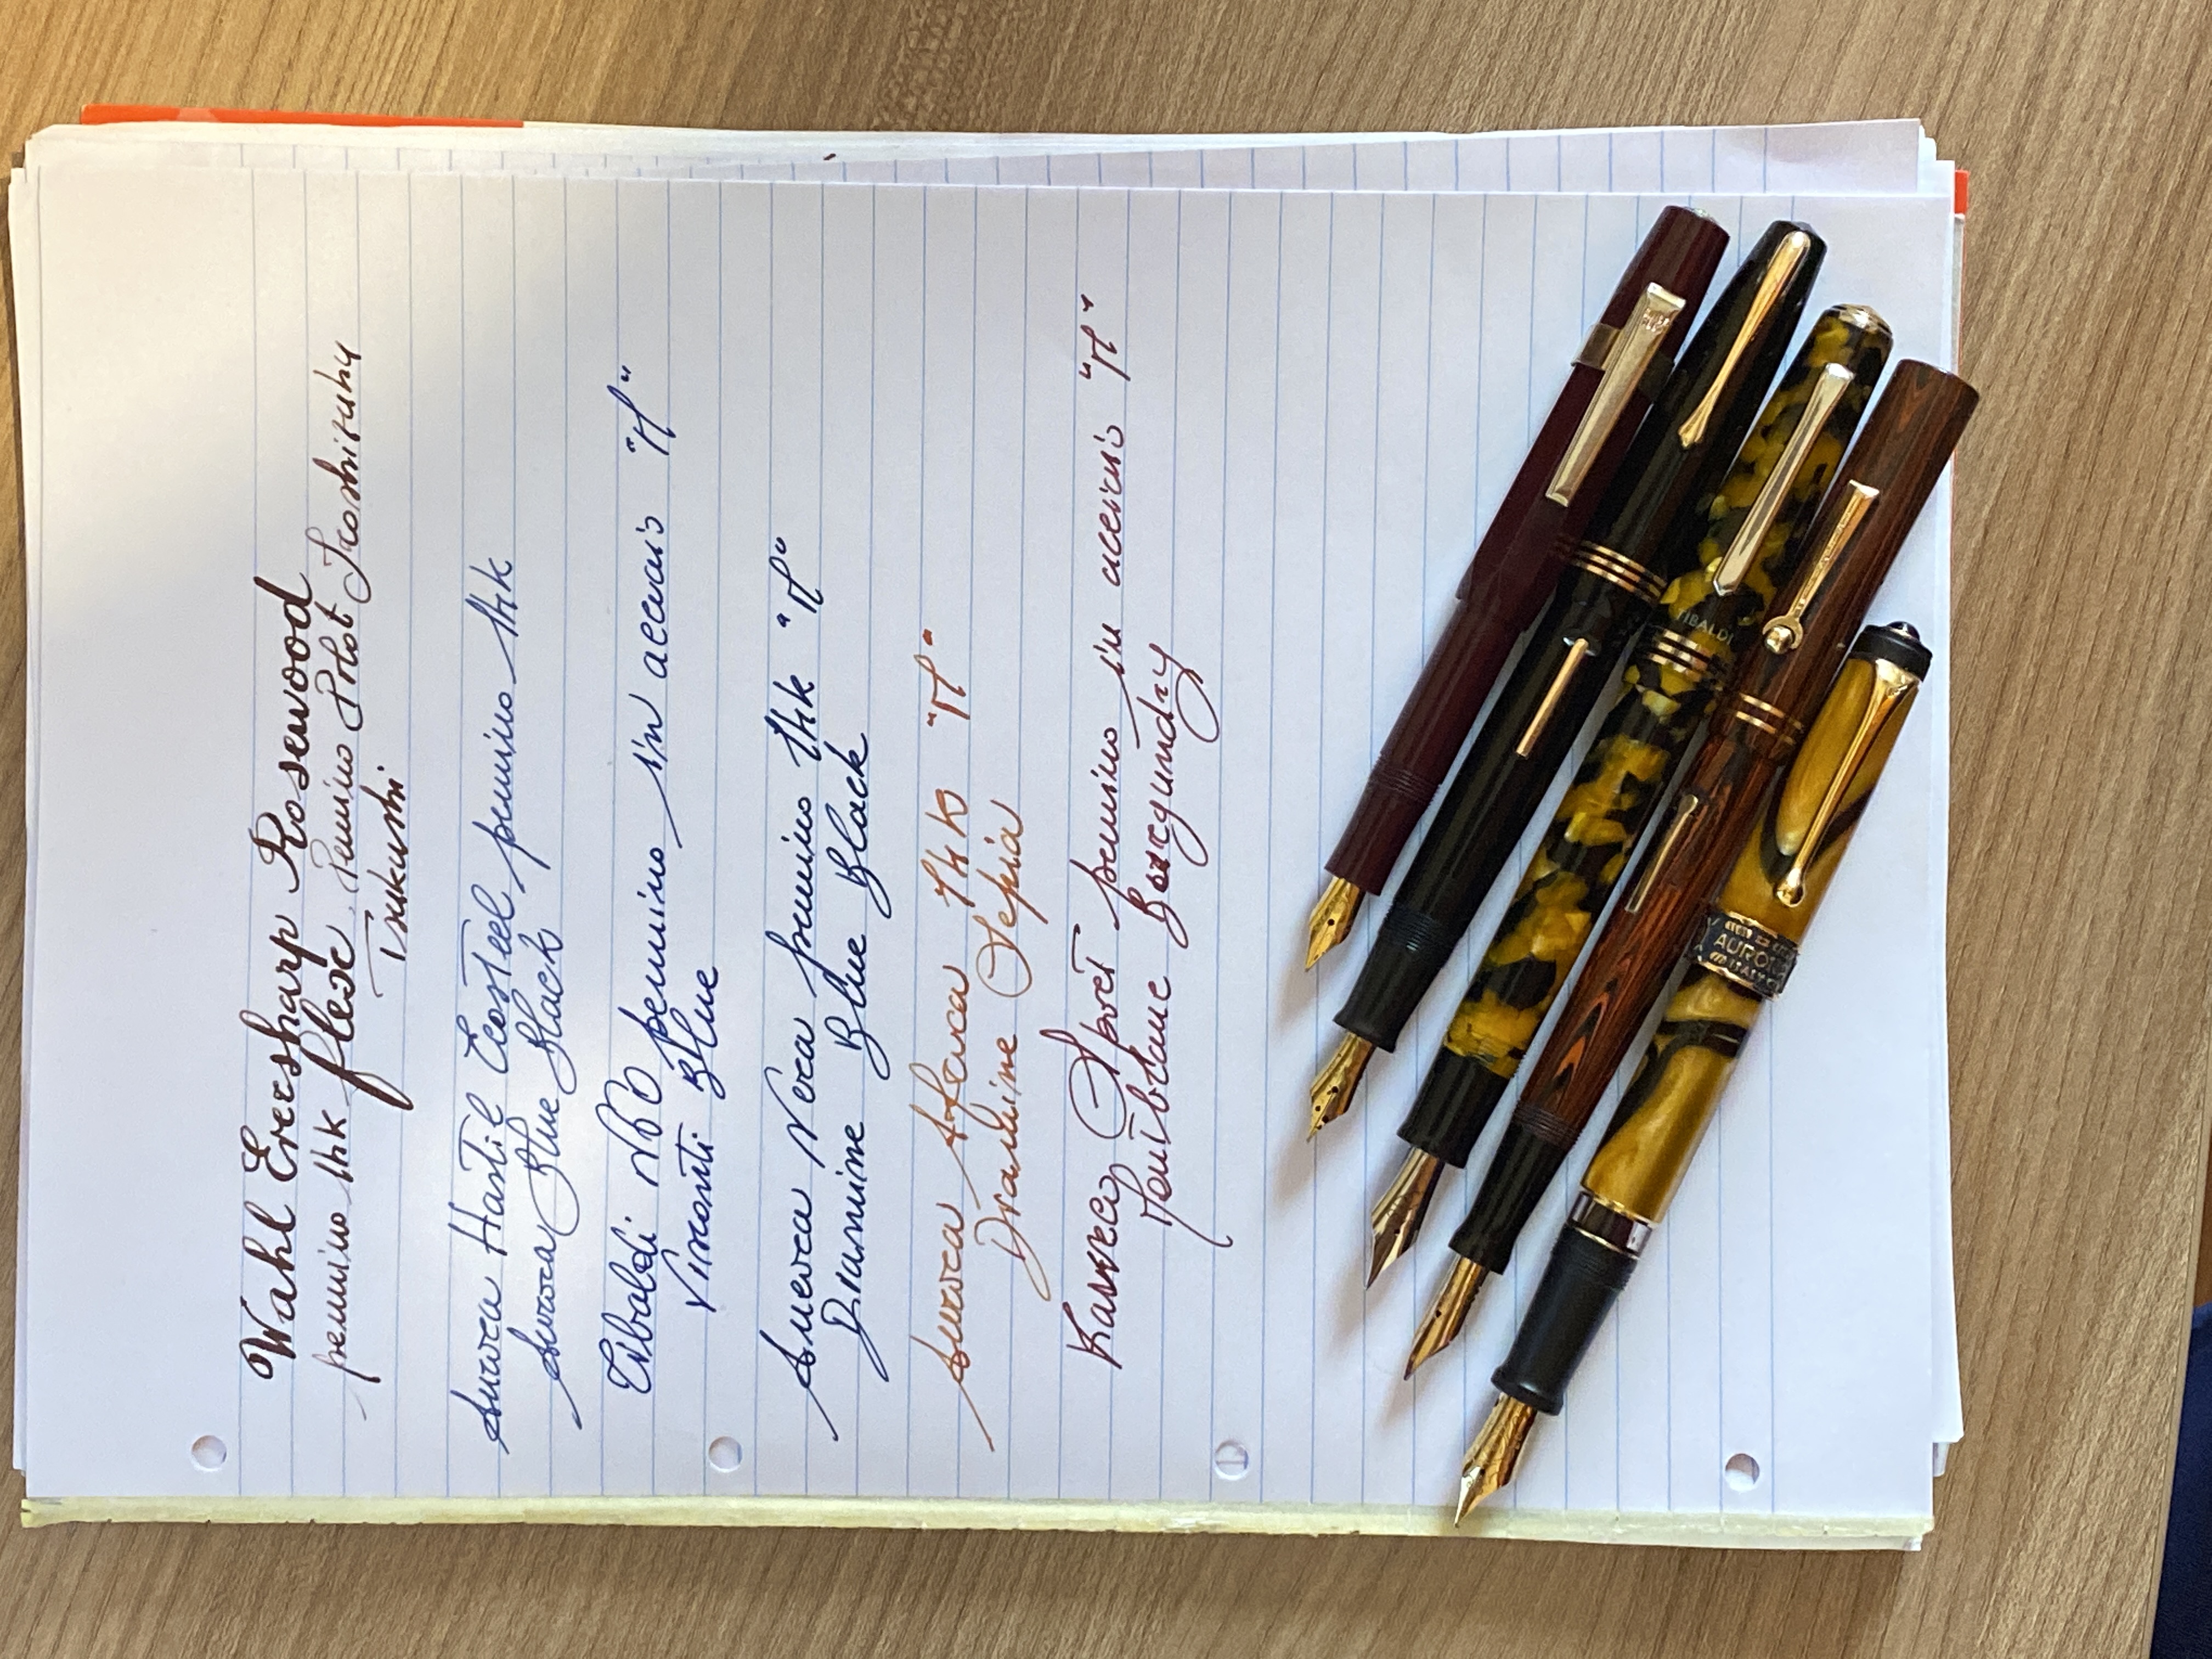 Wahl Eversharp Rosewood
pennino 14k flex. Pennino Pilot Iroshizuku
Tsukushi
Aurora Hastil Ecosteel pennino 14k
Aurora Blue Black
Tibaldi N60 pennino in acciaio "M"
Visconti Blue
Aurora Vera pennino 14k "M"
Diamine Blue Black
Aurora Afrca 14k "M"
Diamine Sepia
Kaweco Sport pennino in acciaio "M"
Montblanc Burgundry
TIBALDI
AURORA
ITALY